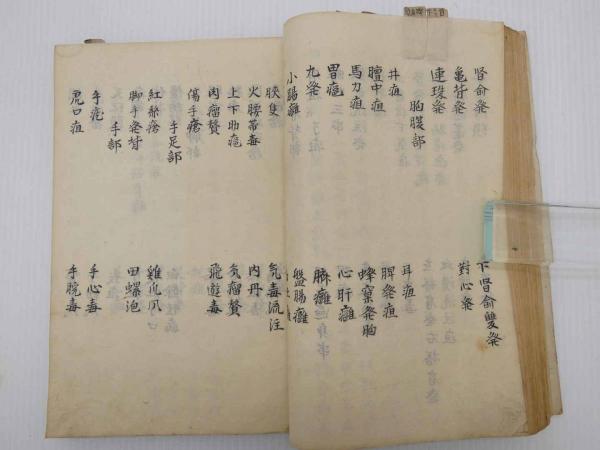 腎俞癹 下腎俞雙癹
龜背癹 對心癹
連珠癹
胸腹部
井疽 耳疽
膻中疽 脾癹疽
馬刀疽 蜂窠癹胸
胃疽 心肝癰
九癹 臍癰
小腸癰 盤腸癰
氣毒流注
火腰帶毒 內丹
上下肋疽 氣瘤贅
肉瘤贅 飛遊毒
傷手瘡
手足部
紅絲瘡 雞爪風
脚手癹背 田螺泡
手部
手疽 手心毒
虎口疽 手腕毒